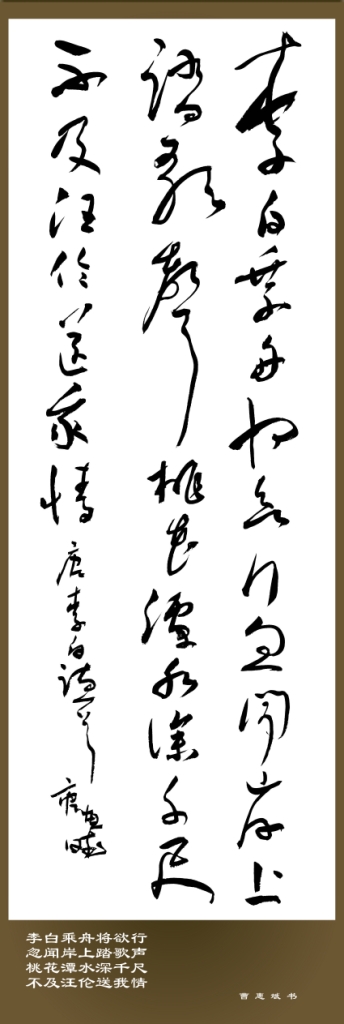 李白乘舟将欲行忽闻岸上
踏歌聲桃花潭水深千尺
不及汪伦送我情
唐李白诗一首
李白乘舟将欲行
忽闻岸上踏歌声
桃花潭水深千尺
不及汪伦送我情
曹惠斌书